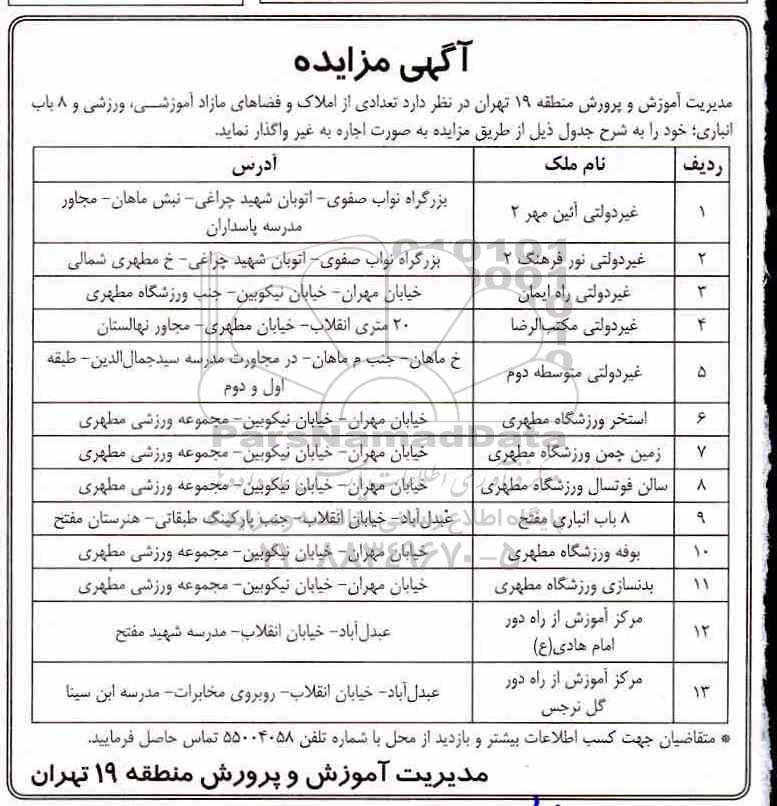 آگهی مزایده
مدیریت آموزش و پرورش منطقه ۱۹ تهران در نظر دارد تعدادی از املاک و فضاهای مازاد آموزشی، ورزشی و ۸ باب
انباری؛ خود را به شرح جدول ذیل از طریق مزایده به صورت اجاره به غیر واگذار نماید.
ردیف نام ملک آدرس
۱ غیردولتی آئین مهر ۲ بزرگراه نواب صفوی- اتوبان شهید چراغی- نبش ماهان- مجاور
مدرسه پاسداران
۲ غیردولتی نور فرهنگ ۲ بزرگراه نواب صفوی- اتوبان شهید چراغی- خ مطهری شمالی
۳ غیردولتی راه ایمان خیابان مهران- خیابان نیکوبین- جنب ورزشگاه مطهری
۴ غیردولتی مکتب‌الرضا ۲۰ متری انقلاب- خیابان مطهری- مجاور نهالستان
۵ غیردولتی متوسطه دوم خ ماهان- جنب م ماهان- در مجاورت مدرسه سیدجمال‌الدین- طبقه
اول و دوم
۶ استخر ورزشگاه مطهری خیابان مهران- خیابان نیکوبین- مجموعه ورزشی مطهری
۷ زمین چمن ورزشگاه مطهری خیابان مهران- خیابان نیکوبین- مجموعه ورزشی مطهری
۸ سالن فوتسال ورزشگاه مطهری خیابان مهران- خیابان نیکوبین- مجموعه ورزشی مطهری
۹ ۸ باب انباری مفتح عبدل‌آباد- خیابان انقلاب- جنب پارکینگ طبقاتی- هنرستان مفتح
۱۰ بوفه ورزشگاه مطهری خیابان مهران- خیابان نیکوبین- مجموعه ورزشی مطهری
۱۱ بدنسازی ورزشگاه مطهری خیابان مهران- خیابان نیکوبین- مجموعه ورزشی مطهری
۱۲ مرکز آموزش از راه دور
امام هادی(ع) عبدل‌آباد- خیابان انقلاب- مدرسه شهید مفتح
۱۳ مرکز آموزش از راه دور
گل نرجس عبدل‌آباد- خیابان انقلاب- روبروی مخابرات- مدرسه ابن سینا
* متقاضیان جهت کسب اطلاعات بیشتر و بازدید از محل با شماره تلفن ۵۵۰۰۴۰۵۸ تماس حاصل فرمایید.
مدیریت آموزش و پرورش منطقه ۱۹ تهران
ParsNamadData